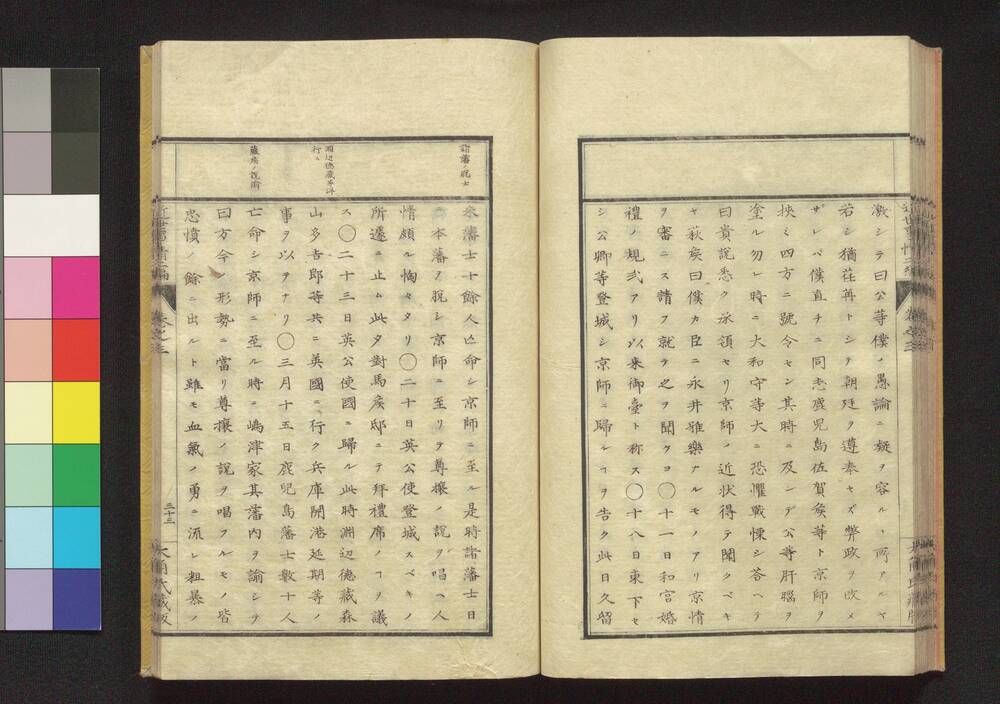 激シテ曰公等僕ノ愚論ニ疑ヲ容ルヽ所アルヤ
若シ猶荏苒トシテ朝廷ヲ遵奉セズ弊政ヲ改メ
ザレバ僕直チニ同志鹿児島佐賀矦等ト京師ヲ
挾ミ四方ニ號令セン其時ニ及ンデ公等肝腦ヲ
塗ル勿レ時ニ大和守等大ニ恐懼戰慄シ答ヘテ
曰貴説悉ク承領セリ京師ノ近状得テ聞クベキ
ヤ萩矦曰僕カ臣ニ永井雅樂ナルモノアリ京情
ヲ審ニス請フ就テ之ヲ聞クヨ〇十一日和宮婚
禮ノ規式アリ以来御臺ト称ス〇十八日東下セ
シ公卿等登城シ京師ニ歸ルヿヲ告ク此日久留
諸藩ノ脱士
米藩士十餘人亡命シ京師ニ至ル是時諸藩士日
ニ本藩ヲ脱シ京師ニ至リテ尊攘ノ説ヲ唱ヘ人
情頗ル恟々タリ〇二十日英公使登城スベキノ
所遽ニ止ム此夕對馬矦邸ニテ拜禮席ノヿヲ議
淵辺徳蔵等洋
行ス
ス〇二十三日英公使國ニ歸ル此時淵辺德藏森
山多吉郎等共ニ英國ニ行ク兵庫開港延期等ノ
事ヲ以テナリ〇三月十五日鹿児島藩士數十人
薩矦ノ説諭
亡命シ京師ニ至ル時ニ嶋津家其藩内ヲ諭シテ
曰方今ノ形勢ニ當リ尊攘ノ説ヲ唱フルモノ皆
忠憤ノ餘ニ出ルト雖モ血氣ノ勇ニ流レ粗暴ノ
卷之三
三十三